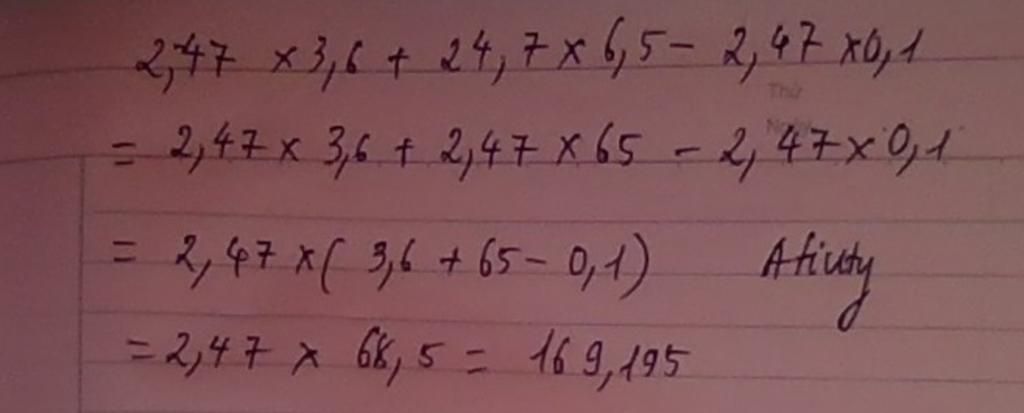 2,47 × 3,6 + 24,7 × 6,5 - 2,47 × 0,1
Thứ
= 2,47 × 3,6 + 2,47 × 65 - 2,47 × 0,1
= 2,47 × ( 3,6 + 65 - 0,1 )
= 2,47 × 68,5 = 169,195